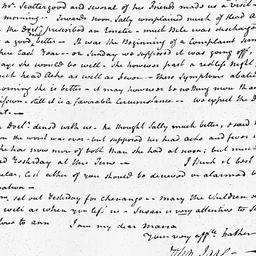 Mr. Scattergood and several of his Friends made us a visit
morning. Towards noon, Sally complained much of Head A
the Doct. prescribed an Emetic - much Bile was discharged
a good better - It was the Beginning of a Complaint
here last Year - on Sunday we supposed it was going off
says she would be well. She however past a restless night
much head Ache as well as Fever - these symptoms abated
morning she is better - it may however be nothing more than
still it is a favorable Circumstance - we expect the D
Doct. dined with us - he thought Sally much better, & said
the worst was over - but supposed her head ache and fever
she has now more of both than she had at noon; but much
Yesterday at this Time - I think it best
lest either of you should be deceived or alarmed
set out Yesterday for Chenango - Mary the Children
well as when you left us - Susan is very attentive to
to ann I am my dear Maria
Your very aff. Father
John Jay -